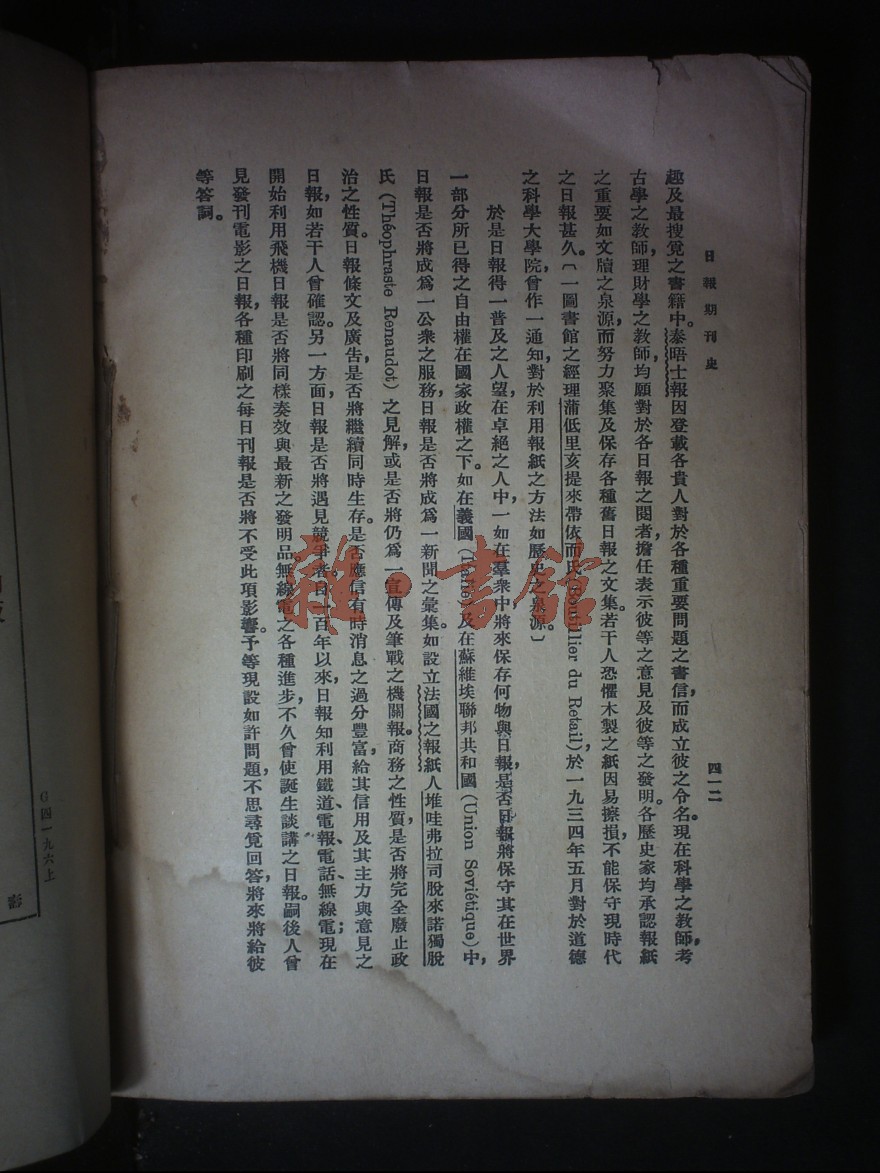 日報期刊史
四一二
趣及最搜覓之書籍中。泰晤士報因登載各貴人對於各種重要問題之書信,而成立彼之令名。現在科學之教師,考
古學之教師,理財學之教師,均願對於各日報之閱者,擔任表示彼等之意見及彼等之發明。各歷史家均承認報紙
之重要如文牘之泉源,而努力聚集及保存各種舊日報之文集。若干人恐懼木製之紙因易擦損,不能保守現時代
之日報甚久。〔一圖書館之經理蒲低里亥提來帶依而氏(Boutillier du Retail),於一九三四年五月對於道德
之科學大學院,曾作一通知,對於利用報紙之方法如歷史之泉源。〕
於是日報得一普及之人望,在卓絕之人中,一如在羣衆中將來保存何物與日報,是否日報將保守其在世界
一部分所已得之自由權在國家政權之下。如在義國(Italie)及在蘇維埃聯邦共和國(Union Soviétique)中,
日報是否將成爲一公衆之服務,日報是否將成爲一新聞之彙集如設立法國之報紙人堆哇弗拉司脫來諾獨脫
氏(Théophraste Renaudot)之見解,或是否將仍爲一宣傳及筆戰之機關報。商務之性質,是否將完全廢止政
治之性質。日報條文及廣告,是否將繼續同時生存。是否應信有時消息之過分豐富,給其信用及其主力與意見之
日報,如若干人曾確認。另一方面,日報是否將遇見競爭者。自一百年以來,日報知利用鐵道、電報、電話、無線電;現在
開始利用飛機日報是否將同樣奏效與最新之發明品。無線電之各種進步,不久曾使誕生談講之日報。嗣後人曾
見發刊電影之日報,各種印刷之每日刊報是否將不受此項影響。予等現設如許問題,不思尋覓回答,將來將給彼
等答詞。
雜·書館
G四一九六上